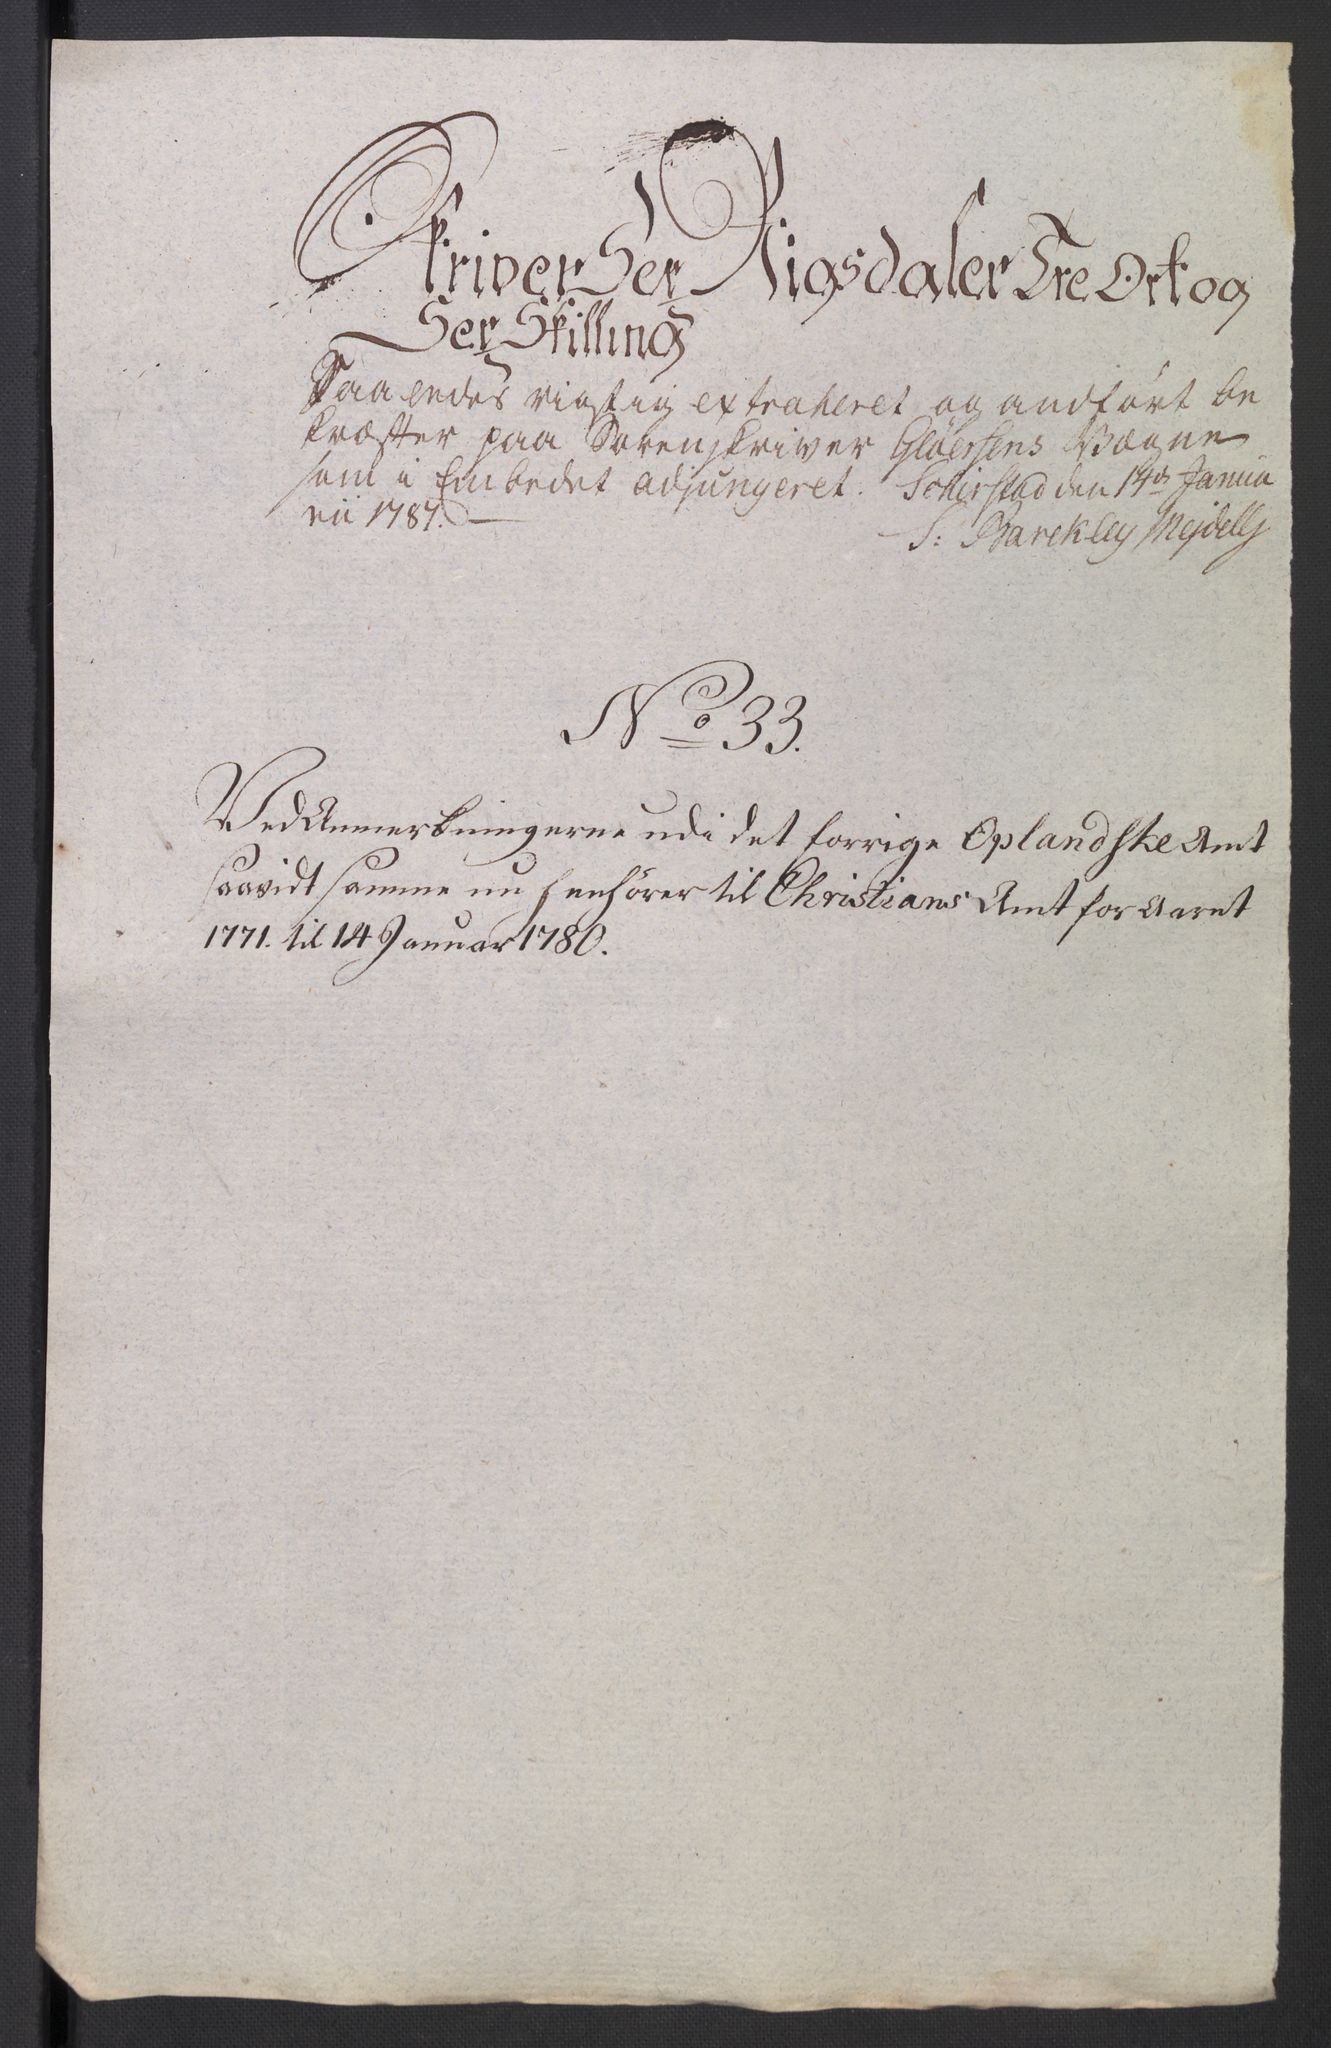 Skriver Sex Rigsdaler Tre Ort og
Sex Skilling
Saaledes rigtig extraheret og andført be
kræfter paa Sorenskriver Gløersens Vægne
som i Embedet adjungeret. den 14de Janua
rii 1787.
S: Barckley Mejdell
No 33.
Ved Anmerkningerne udi det forrige Oplandske Amt
saavidt samme nu henhører til Christians Amt for Aaret
1771. til 14 Januar 1780.